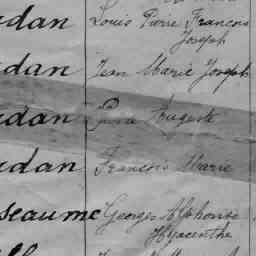 dan Louis Pierre François
Joseph
dan Jean Marie Joseph
dan Pierre Auguste
dan François Marie
seaume Georges Alphonse
Hyacinthe